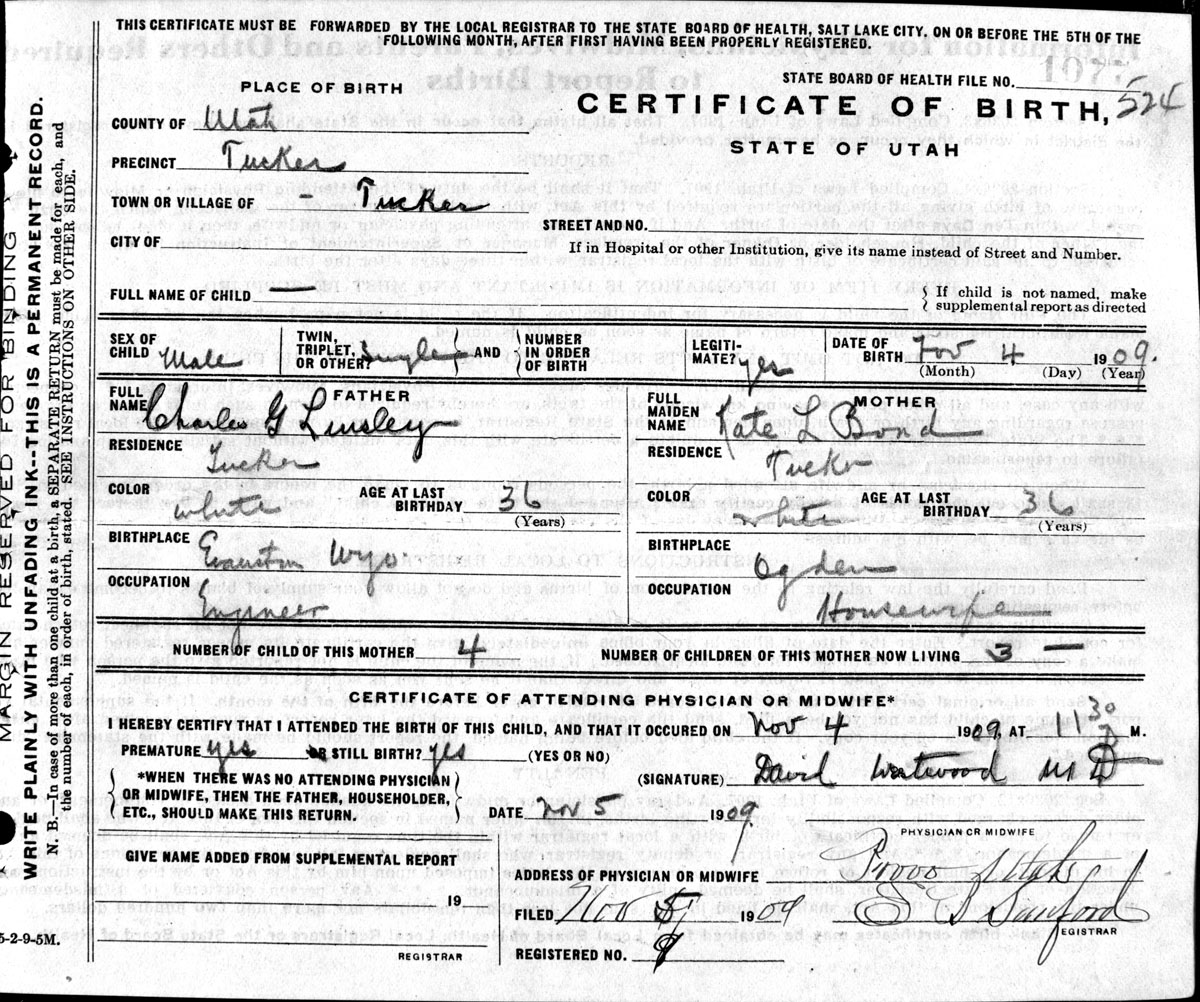 THIS CERTIFICATE MUST BE FORWARDED BY THE LOCAL REGISTRAR TO THE STATE BOARD OF HEALTH, SALT LAKE CITY, ON OR BEFORE THE 5TH OF THE
FOLLOWING MONTH, AFTER FIRST HAVING BEEN PROPERLY REGISTERED.
STATE BOARD OF HEALTH FILE NO.
PLACE OF BIRTH
CERTIFICATE OF BIRTH, 524
STATE OF UTAH
COUNTY OF Utah
PRECINCT Tucker
TOWN OR VILLAGE OF - Tucker
STREET AND NO.
CITY OF
If in Hospital or other Institution, give its name instead of Street and Number.
FULL NAME OF CHILD
{ If child is not named, make
supplemental report as directed
SEX OF CHILD Male
TWIN, TRIPLET, OR OTHER? Single } AND { NUMBER IN ORDER OF BIRTH
LEGITI-MATE? yes
DATE OF BIRTH Nov 4 1909.
(Month) (Day) (Year)
FATHER
FULL NAME Charles G Linsley
RESIDENCE Tucker
COLOR white AGE AT LAST BIRTHDAY 36
(Years)
BIRTHPLACE Evanston Wyo.
OCCUPATION Engineer
MOTHER
FULL MAIDEN NAME Kate L Bond
RESIDENCE Tucker
COLOR white AGE AT LAST BIRTHDAY 36
(Years)
BIRTHPLACE Ogden
OCCUPATION Housewife
NUMBER OF CHILD OF THIS MOTHER 4 NUMBER OF CHILDREN OF THIS MOTHER NOW LIVING 3
CERTIFICATE OF ATTENDING PHYSICIAN OR MIDWIFE*
I HEREBY CERTIFY THAT I ATTENDED THE BIRTH OF THIS CHILD, AND THAT IT OCCURED ON Nov 4 1909, AT 1 30 M.
PREMATURE yes OR STILL BIRTH? yes (YES OR NO)
{ *WHEN THERE WAS NO ATTENDING PHYSICIAN
OR MIDWIFE, THEN THE FATHER, HOUSEHOLDER,
ETC., SHOULD MAKE THIS RETURN. }
(SIGNATURE) David Westwood MD
DATE Nov 5 1909
PHYSICIAN OR MIDWIFE
GIVE NAME ADDED FROM SUPPLEMENTAL REPORT
19
REGISTRAR
ADDRESS OF PHYSICIAN OR MIDWIFE Provo Utah
FILED Nov 1909
REGISTRAR
REGISTERED NO.
5-2-9-5M.
MARGIN RESERVED FOR BINDING
WRITE PLAINLY WITH UNFADING INK--THIS IS A PERMANENT RECORD.
N. B.—In case of more than one child at a birth, a SEPARATE RETURN must be made for each, and
the number of each, in order of birth, stated. SEE INSTRUCTIONS ON OTHER SIDE.